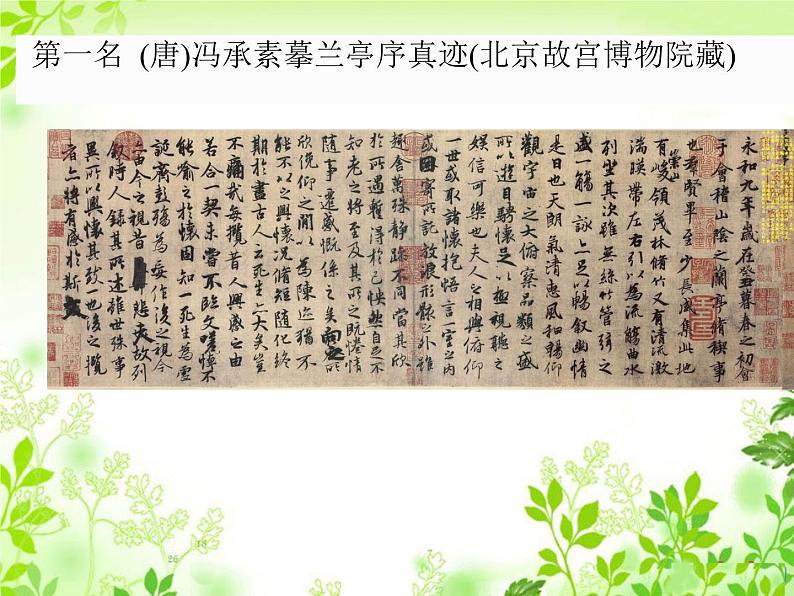 第一名 (唐)冯承素摹兰亭序真迹(北京故宫博物院藏)
永和九年歲在癸丑暮春之初會
于會稽山陰之蘭亭脩稧事
也羣賢畢至少長咸集此地
有崇山峻領茂林脩竹又有清流激
湍暎帶左右引以為流觴曲水
列坐其次雖無絲竹管弦之
盛一觴一詠亦足以暢敘幽情
是日也天朗氣清惠風和暢仰
觀宇宙之大俯察品類之盛
所以遊目騁懷足以極視聽之
娛信可樂也夫人之相與俯仰
一世或取諸懷抱悟言一室之內
或因寄所託放浪形骸之外雖
趣舍萬殊靜躁不同當其欣
於所遇暫得於己怏然自足不
知老之將至及其所之既惓情
隨事遷感慨係之矣向之所
欣俛仰之間以為陳迹猶不
能不以之興懷況脩短隨化終
期於盡古人云死生亦大矣豈
不痛哉每攬昔人興感之由
若合一契未嘗不臨文嗟悼不
能喻之於懷固知一死生為虛
誕齊彭殤為妄作後之視今
亦由今之視昔悲夫故列
敘時人錄其所述雖世殊事
異所以興懷其致一也後之攬
者亦將有感於斯
18
26
7